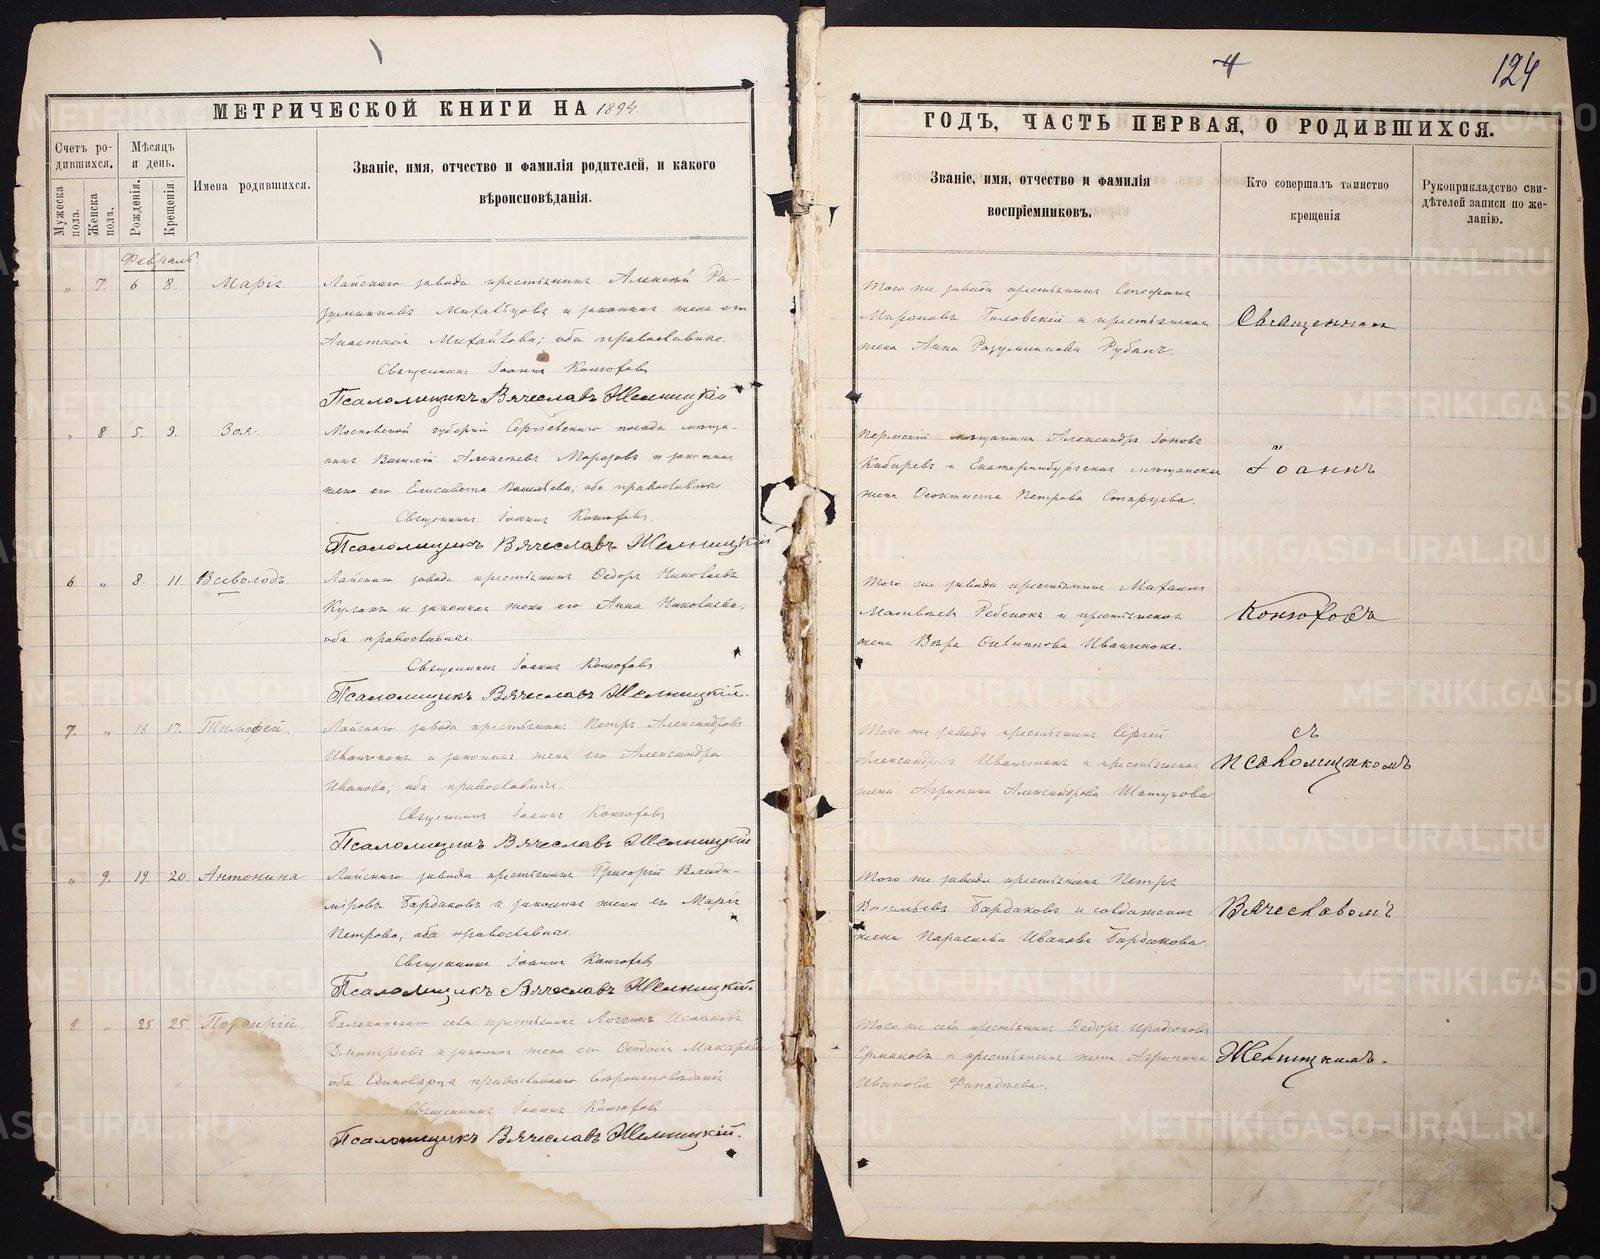 4
124
МЕТРИЧЕСКОЙ КНИГИ НА 1894.
ГОДЪ, ЧАСТЬ ПЕРВАЯ, О РОДИВШИХСЯ.
Счетъ ро-
дившихся.
Мужеска пола.
Женска пола.
Мѣсяцъ
и день.
Рожденія.
Крещенія.
Имена родившихся.
Званіе, имя, отчество и фамилія родителей, и какого
вѣроисповѣданія.
Званіе, имя, отчество и фамилія
воспріемниковъ.
Кто совершалъ таинство
крещенія
Рукоприкладство сви-
дѣтелей записи по же-
ланію.
Февраль.
„ 7. 6 8. Марія
Лайскаго завода крестьянинъ Алексѣй Ра-
зумниковъ и законная жена его
Анастасія оба православные.
Священникъ Іоаннъ Конюховъ
Псаломщикъ Вячеславъ Желницкій
Того же завода крестьянинъ Стефанъ
Мироновъ и крестьянская
жена Анна Разумникова Рубанъ.
Священникъ
„ 8 5. 9. Зоя.
Московской губерніи Сергіевскаго посада мѣща-
нинъ Василій Алексѣевъ Морозовъ и законная
жена его Елисавета оба православные
Священникъ Іоаннъ Конюховъ.
Псаломщикъ Вячеславъ Желницкій
Пермскій мѣщанинъ Александръ Іоновъ
Кибиревъ и Екатеринбургская мѣщанская
жена Ѳеоктиста Петрова Старцева.
Іоаннъ
6 „ 8. 11. Всеволодъ
Лайскаго завода крестьянинъ Ѳедоръ Николаевъ
Кулакъ и законная жена его Анна Николаева;
оба православные
Священникъ Іоаннъ Конюховъ
Псаломщикъ Вячеславъ Желницкій.
Того же завода крестьянинъ Михаилъ
Матвѣевъ Ребенокъ и крестьянская
жена Вѣра Иванченко.
Конюховъ
7. „ 16. 17. Тимофей.
Лайскаго завода крестьянинъ Петръ Александровъ
Иванченко и законная жена его Александра
Иванова; оба православные.
Священникъ Іоаннъ Конюховъ
Псаломщикъ Вячеславъ Желницкій
Того же завода крестьянинъ Сергій
Александровъ Иванченко и крестьянская
жена Агрипина Александрова
съ
псаломщикомъ
„ 9. 19. 20. Антонина
Лайскаго завода крестьянинъ Григорій Влади-
міровъ Бардаковъ и законная жена его Марія
Петрова; оба православные.
Священникъ Іоаннъ Конюховъ
Псаломщикъ Вячеславъ Желницкій.
Того же завода крестьянинъ Петръ
Васильевъ Бардаковъ и солдатская
жена Параскева Иванова Бардакова.
Вячеславомъ
8 „ 25 25. Порфирій.
Балакинскаго села крестьянинъ Логгинъ Исааковъ
Дмитріевъ и законная жена его Ѳеодосія Макарова
оба Единоверцы православнаго вѣроисповѣданія
Священникъ Іоаннъ Конюховъ
Псаломщикъ Вячеславъ Желницкій.
Того же села крестьянинъ Ѳедоръ Иродіоновъ
Ермаковъ и крестьянская жена Агрипина
Иванова
Желницкимъ.
METRIKI.GASO-URAL.RU